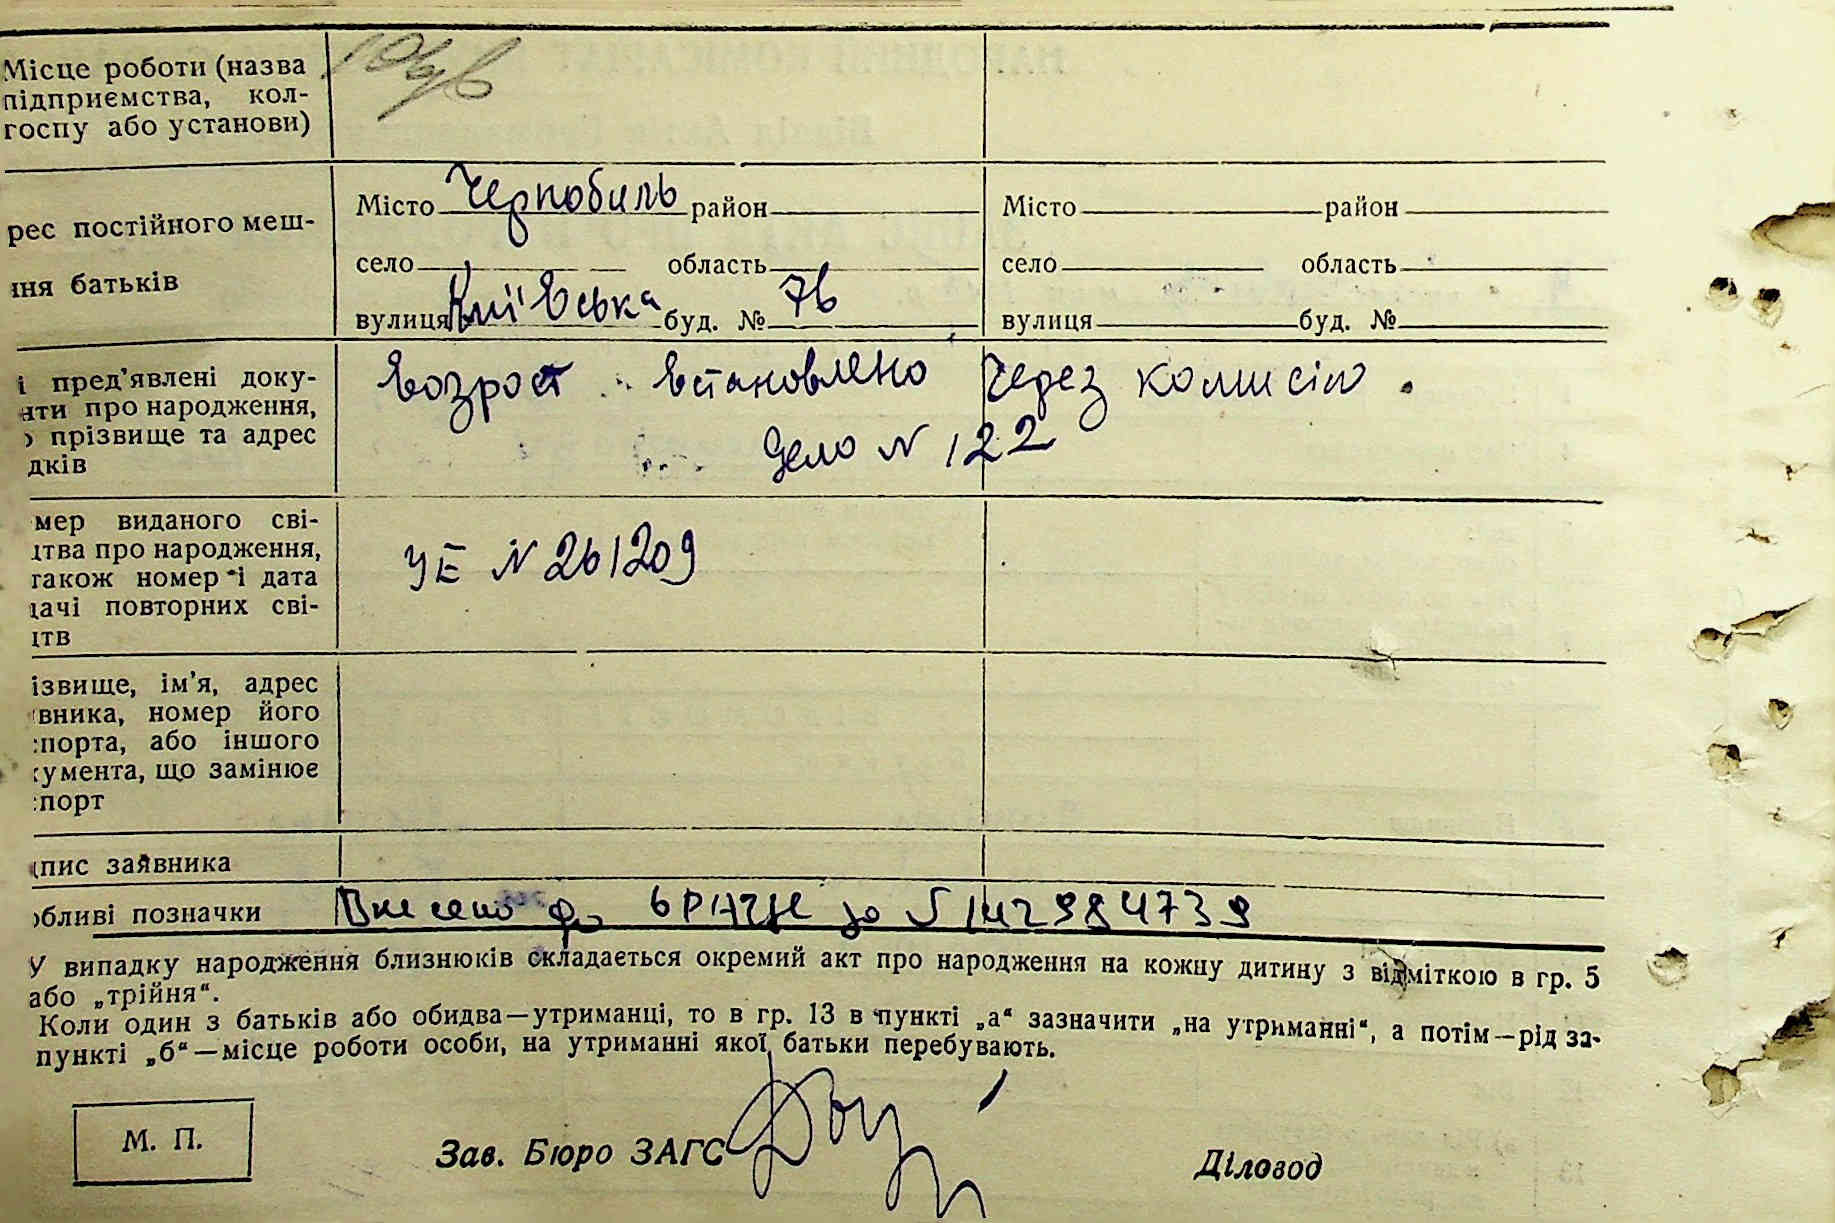 Місце роботи (назва
підприємства, кол-
госпу або установи)
рес постійного меш-
ння батьків
Місто Чернобиль район
село область
вулиця Київська буд. № 76
Місто район
село область
вулиця буд. №
і пред'явлені доку-
нти про народження,
о прізвище та адрес
дків
Возрост встановлено через комисію.
Дело N 122
мер виданого сві-
цтва про народження,
також номер і дата
дачі повторних сві-
цтв
УЕ N 261209
ізвище, ім'я, адрес
вника, номер його
спорта, або іншого
кумента, що замінює
спорт
дпис заявника
обливі позначки
Внесено до ВРАЦС за N 142984739
У випадку народження близнюків складається окремий акт про народження на кожну дитину з відміткою в гр. 5
або „трійня“.
Коли один з батьків або обидва—утриманці, то в гр. 13 в пункті „а“ зазначити „на утриманні“, а потім—рід за-
пункті „б“—місце роботи особи, на утриманні якої батьки перебувають.
М. П.
Зав. Бюро ЗАГС
Діловод